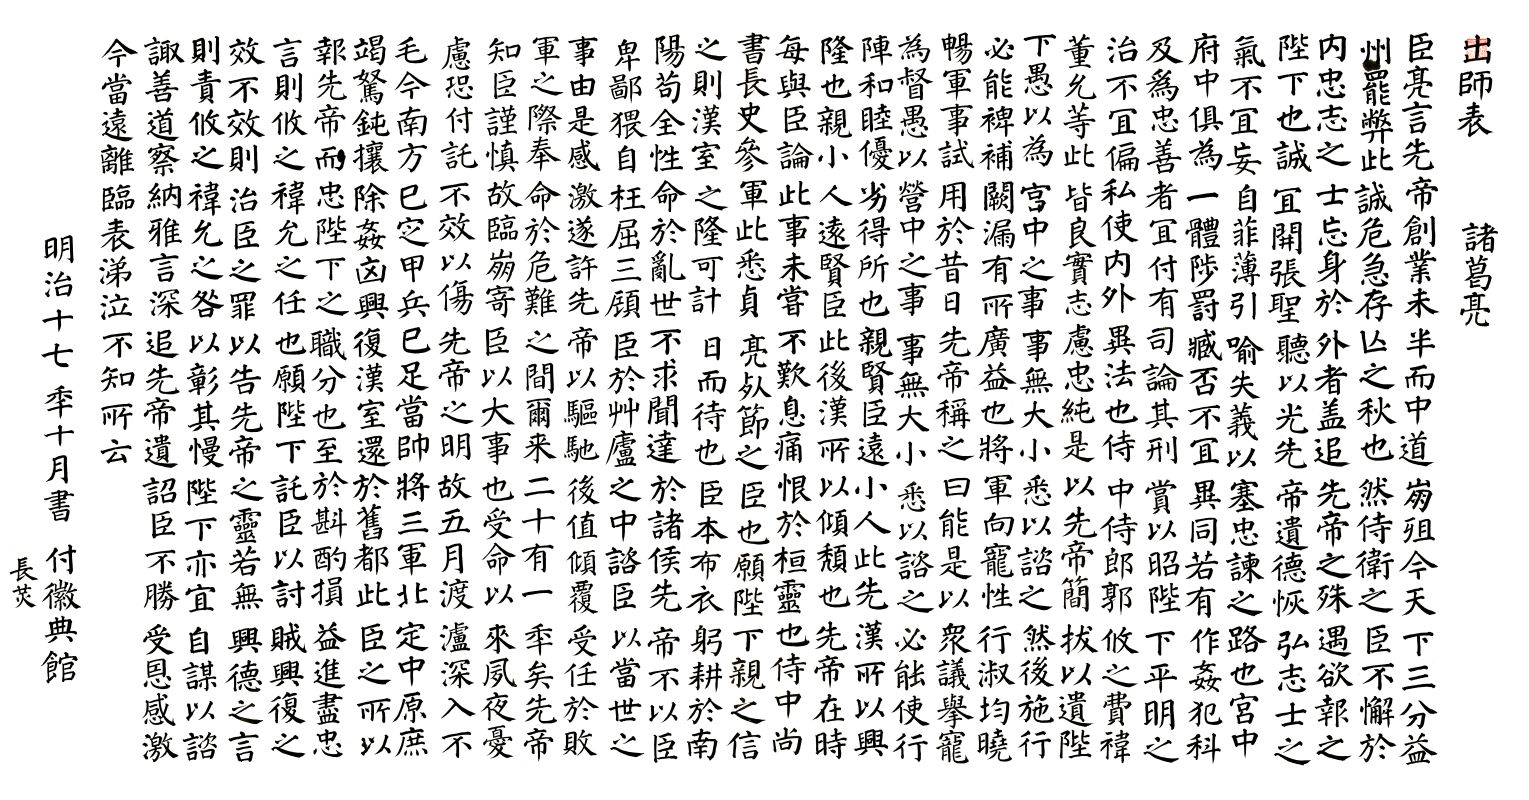 出師表 諸葛亮
臣亮言先帝創業未半而中道崩殂今天下三分益
州罷弊此誠危急存亡之秋也然侍衛之臣不懈於
内忠志之士忘身於外者盖追先帝之殊遇欲報之
陛下也誠宜開張聖聽以光先帝遺德恢弘志士之
氣不宜妄自菲薄引喻失義以塞忠諫之路也宮中
府中俱為一體陟罰臧否不宜異同若有作姦犯科
及為忠善者宜付有司論其刑賞以昭陛下平明之
治不宜偏私使内外異法也侍中侍郎郭攸之費禕
董允等此皆良實志慮忠純是以先帝簡拔以遺陛
下愚以為宮中之事事無大小悉以諮之然後施行
必能裨補闕漏有所廣益也將軍向寵性行淑均曉
暢軍事試用於昔日先帝稱之曰能是以衆議擧寵
為督愚以營中之事事無大小悉以諮之必能使行
陣和睦優劣得所也親賢臣遠小人此先漢所以興
隆也親小人遠賢臣此後漢所以傾頽也先帝在時
每與臣論此事未嘗不歎息痛恨於桓靈也侍中尚
書長史參軍此悉貞亮死節之臣也願陛下親之信
之則漢室之隆可計日而待也臣本布衣躬耕於南
陽苟全性命於亂世不求聞達於諸侯先帝不以臣
卑鄙猥自枉屈三顧臣於艸廬之中諮臣以當世之
事由是感激遂許先帝以驅馳後值傾覆受任於敗
軍之際奉命於危難之間爾来二十有一秊矣先帝
知臣謹慎故臨崩寄臣以大事也受命以來夙夜憂
慮恐付託不效以傷先帝之明故五月渡瀘深入不
毛今南方已定甲兵已足當帥將三軍北定中原庶
竭駑鈍攘除姦凶興復漢室還於舊都此臣之所以
報先帝而忠陛下之職分也至於斟酌損益進盡忠
言則攸之禕允之任也願陛下託臣以討賊興復之
效不效則治臣之罪以告先帝之靈若無興德之言
則責攸之禕允之咎以彰其慢陛下亦宜自謀以諮
諏善道察納雅言深追先帝遺詔臣不勝受恩感激
今當遠離臨表涕泣不知所云
明治十七秊十月書 付徽典館
長炗